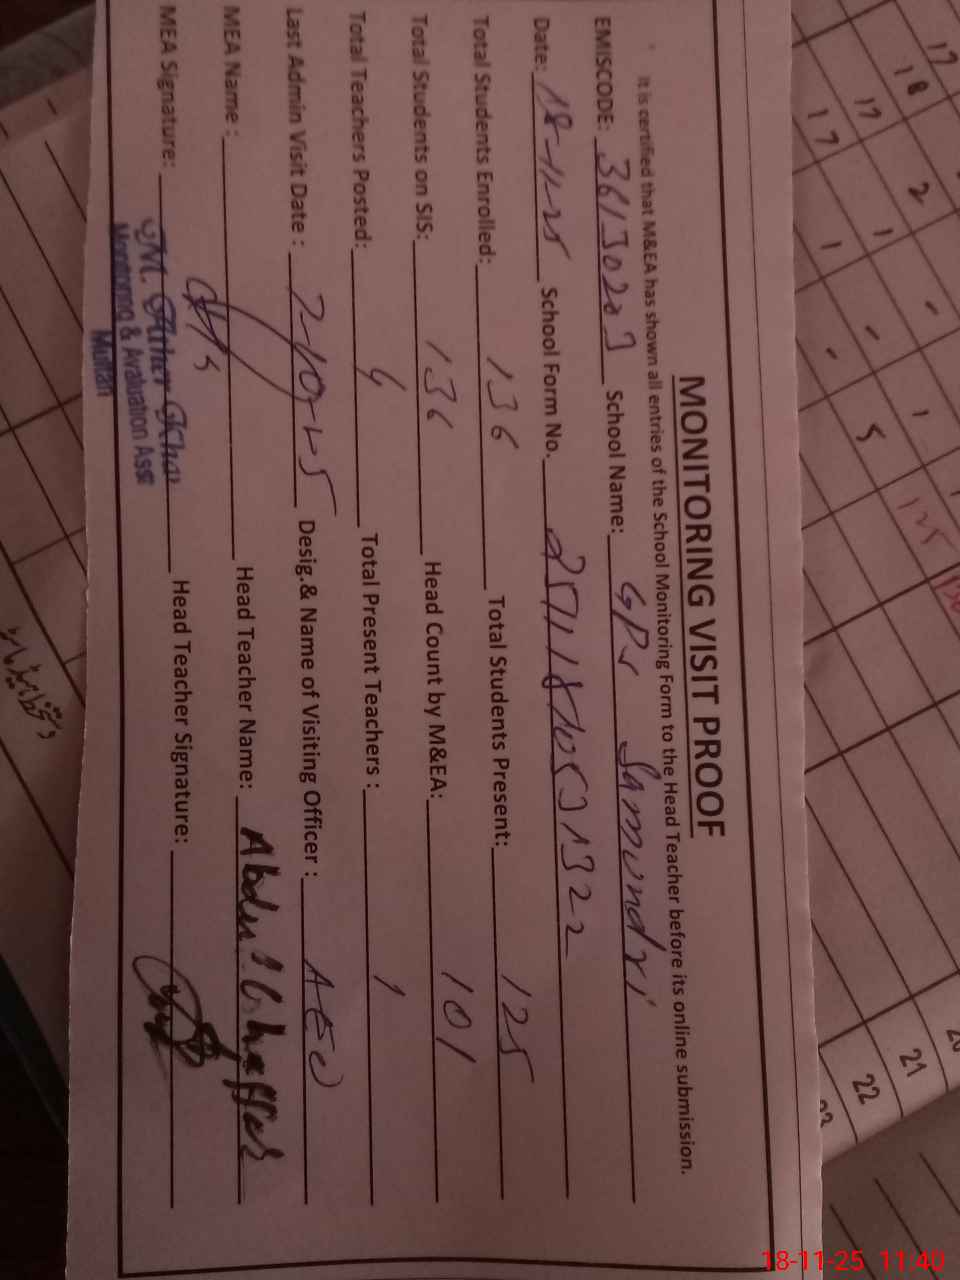 MONITORING VISIT PROOF
It is certified that M&EA has shown all entries of the School Monitoring Form to the Head Teacher before its online submission.
EMISCODE: 36130203 School Name: GPS Samundri
Date: 18-11-25 School Form No. 25111810531322
Total Students Enrolled: 136 Total Students Present: 125
Total Students on SIS: 136 Head Count by M&EA: 101
Total Teachers Posted: 4 Total Present Teachers: 1
Last Admin Visit Date: 7-10-25 Desig.& Name of Visiting Officer: AEO
MEA Name: Head Teacher Name: Abdul Ghaffar
MEA Signature: Head Teacher Signature:
Monitoring & Avaluation Asst
Multan
17
18 2
17 1
17 1 5
125
21
22
18-11-25 11:40